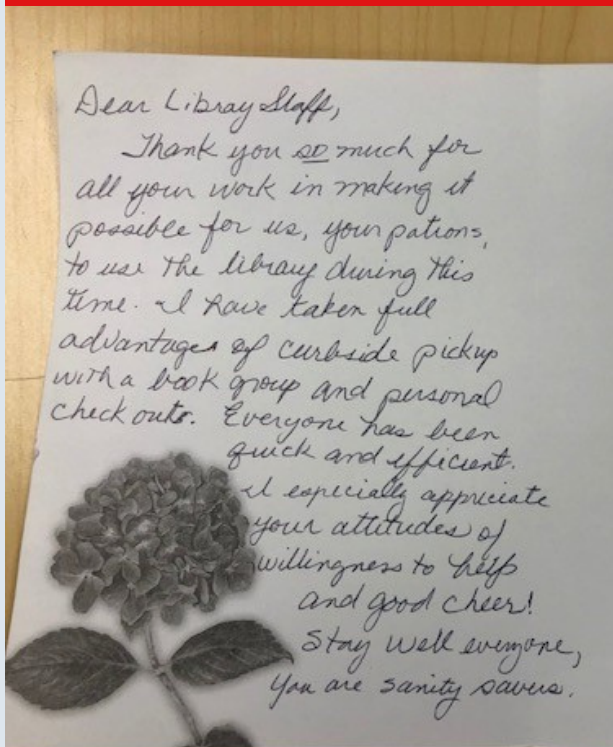 Dear Libray Staff,
Thank you so much for
all your work in making it
possible for us, your patrons,
to use the library during this
time. I have taken full
advantages of curbside pickup
with a book group and personal
check outs. Everyone has been
quick and efficient.
I especially appriciate
your attitudes of
willingness to help
and good cheer!
Stay well everyone,
you are sanity savers.